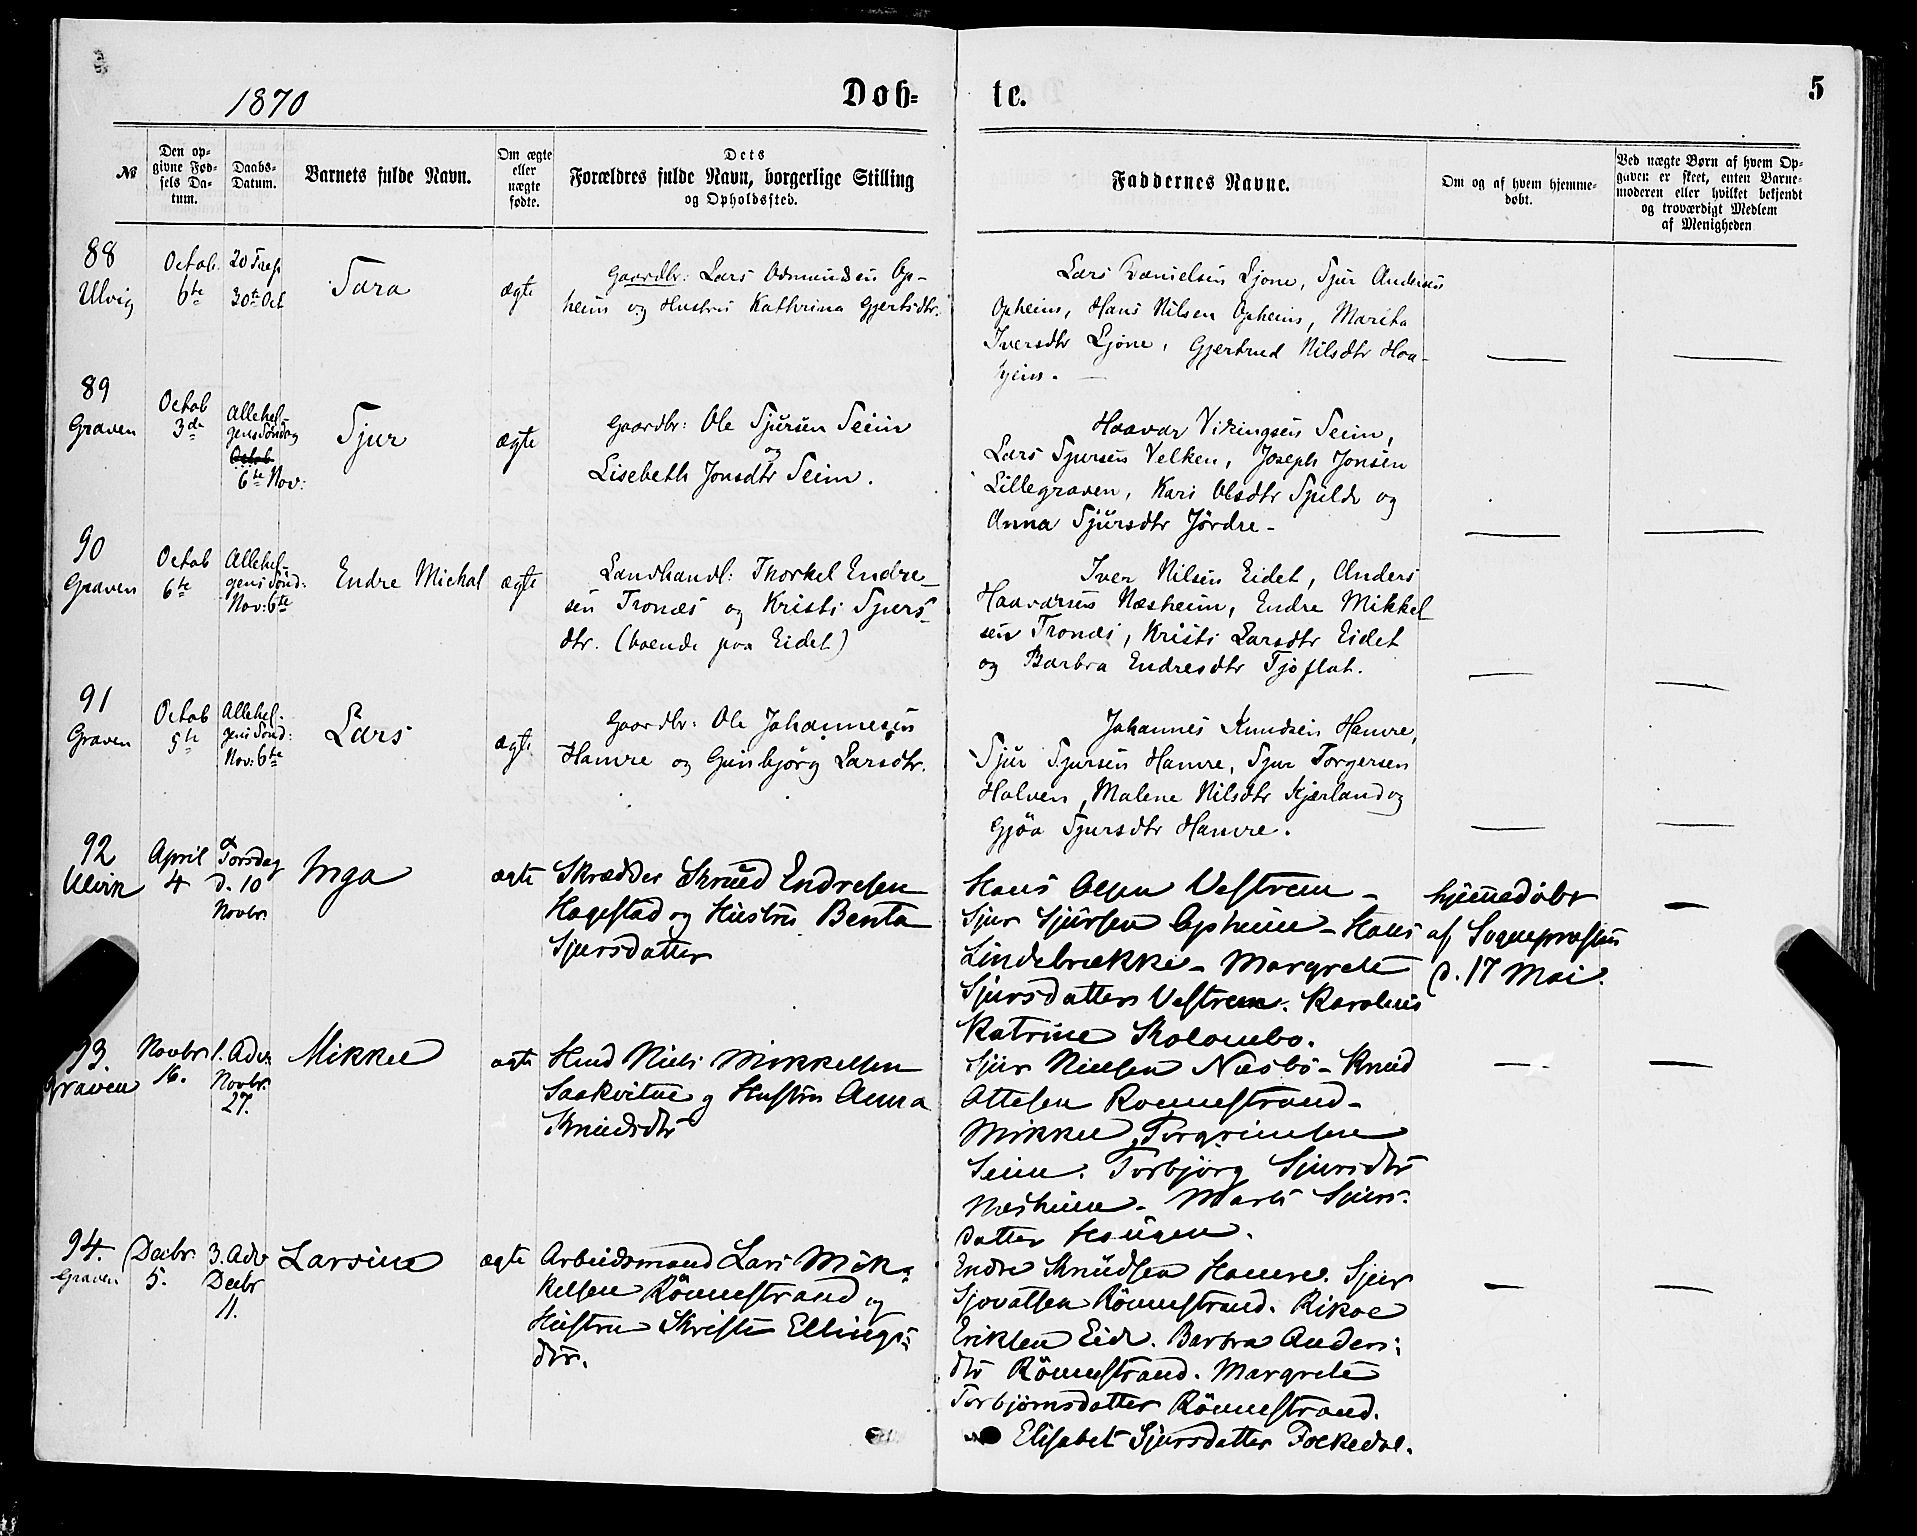 1870
Döb=
te.
5
№
Den op-
givne Fød-
sels Da-
tum.
Daabs-
Datum.
Barnets fulde Navn.
Om ægte
eller
uægte
fødte.
Dets
Forældres fulde Navn, borgerlige Stilling
og Opholdssted.
Faddernes Navne.
Om og af hvem hjemme-
døbt.
Ved uægte Børn af hvem Op-
gaven er skeet, enten Barne-
moderen eller hvilket bekjendt
og troværdigt Medlem
af Menigheden
88
Ulvig
Octob.
6te
20
30te Oct
Sara
ægte
Gaardbr: Lars Odmundsen Op-
heim og Hustru Kathrina Gjertsdtr.
Lars Danielsen Ljone, Sjur Andersen
Opheim, Hans Nilsen Opheim, Marita
Iversdtr Ljone, Gjertrud Nilsdtr Haa-
hjeim.
89
Graven
Octob
3de
Allehel-
gens Søndag
Octob
6te Nov:
Sjur
ægte
Gaardbr: Ole Sjursen Seim
og
Lisebeth Jonsdtr Seim.
Haavar Vikingsen Seim,
Lars Sjursen Velken, Joseph Jonsen
Lillegraven, Kari Olsdtr Spilde og
Anna Sjursdtr Jördre-
90
Graven
Octob
6te
Allehel-
gens Sönd:
Nov: 6te
Endre Michal
ægte
Landhandl: Thorkel Endre-
sen Tronæs og Kristi Sjurs-
dtr. (boende paa Eidet)
Iver Nilsen Eidet, Anders
Haavarsen Næsheim, Endre Mikkel
sen Tronæs, Kristi Larsdtr Eidet
og Barbra Endresdtr Tjoflat.
91
Graven
Octob
5te
Allehel-
gens Sönd:
Nov: 6te
Lars
ægte
Gaardbr: Ole Johannesen
Hamre og Gunbjörg Larsdtr.
Johannes Knudsen Hamre,
Sjur Sjursen Hamre, Sjur Torgersen
Halven, Malene Nilsdtr Kjærland og
Gjöa Sjursdtr Hamre.
92
Ulvik
April
4
Torsdag
d. 10
Novbr.
Inga
ægte
Skrædder Knud Endresen
Hagestad og Hustru Benta
Sjursdatter
Hans Olsen Vestrem -
Sjur Sjursen Opheim - Hans
Lindebrække - Margrete
Sjursdatter Vestrem. Karoline
Katrine Skolombo.
hjemmedöbt
af Sognepresten
d. 17 Mai.
93.
Graven
Novbr.
16.
1. Adv
Novbr.
27.
Mikkel
ægte
Hmd Niels Mikkelsen
Saakvitne og Hustru Anna
Knudsdtr
Sjur Nielsen Næsbö - Knud
Ottesen Roennestrand -
Mikkel Torgrimsen
Seim. Torbjörg Sjursdtr
Næsheim - Marta Sjurs-
datter Haugen.
94.
Graven
Decbr.
5.
3. Adv
Decbr
11.
Larsine
ægte
Arbeidsmand Lars Mik-
kelsen Rönnestrand og
Hustru Kristi Ellings-
dtr.
Endre Knudsen Hamre. Sjur
Sjovatsen Rönnestrand. Rikoe
Eriksen Eide. Barbra Anders:
dtr Rönnestrand. Margrete
Torbjörnsdatter Rönnestrand.
Elisabet Sjursdatter Folkedal.